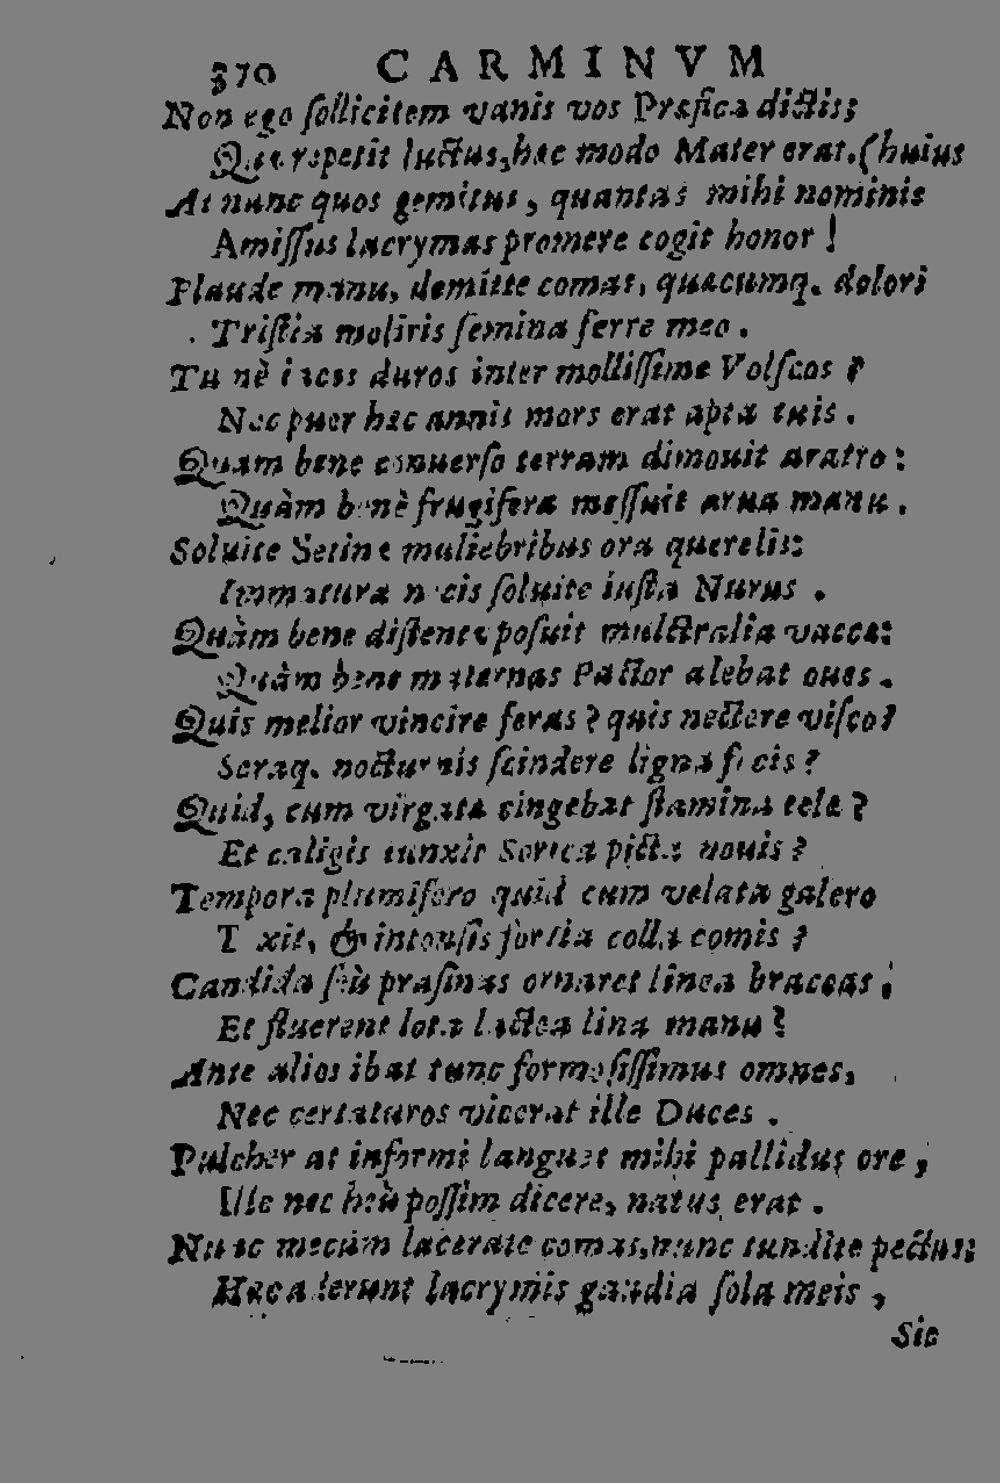 370 CARMINVM
Non ego sollicitem vanis vos Præfica dictis;
Quæ repetit luctus, hæc modo Mater erat. (huius
At nunc quos gemitus, quantas mihi nominis
Amissus lacrymas promere cogit honor!
Plaude manu, demitte comas, quæcumq. dolori
Tristia moliris semina ferre meo.
Tu nè iaces duros inter mollissime Volscos?
Nec puer hæc annis mors erat apta tuis.
Quam bene conuerso terram dimouit aratro:
Quàm benè frugifera messuit arua manu.
Soluite Setinę muliebribus ora querelis:
Immatura necis soluite iusta Nurus.
Quàm bene distentę posuit mulctralia vaccæ:
Quàm bene maternas Pastor alebat oues.
Quis melior vincire feras? quis nectere visco?
Seraq. nocturnis scindere ligna focis?
Quid, cum virgata cingebat stamina tela?
Et caligis iunxit Serica picta nouis?
Tempora plumifero quid cum velata galero
Texit, & intonsis fortia colla comis?
Candida seù prasinas ornaret linea braccas;
Et fluerent lota lactea lina manu?
Ante alios ibat tunc formosissimus omnes,
Nec certaturos vicerat ille Duces.
Pulcher at informi languet mihi pallidus ore,
Ille nec heù possim dicere, natus erat.
Nunc mecùm lacerate comas, nunc tundite pectus:
Hæc aderunt lacrymis gaudia sola meis,
Sic